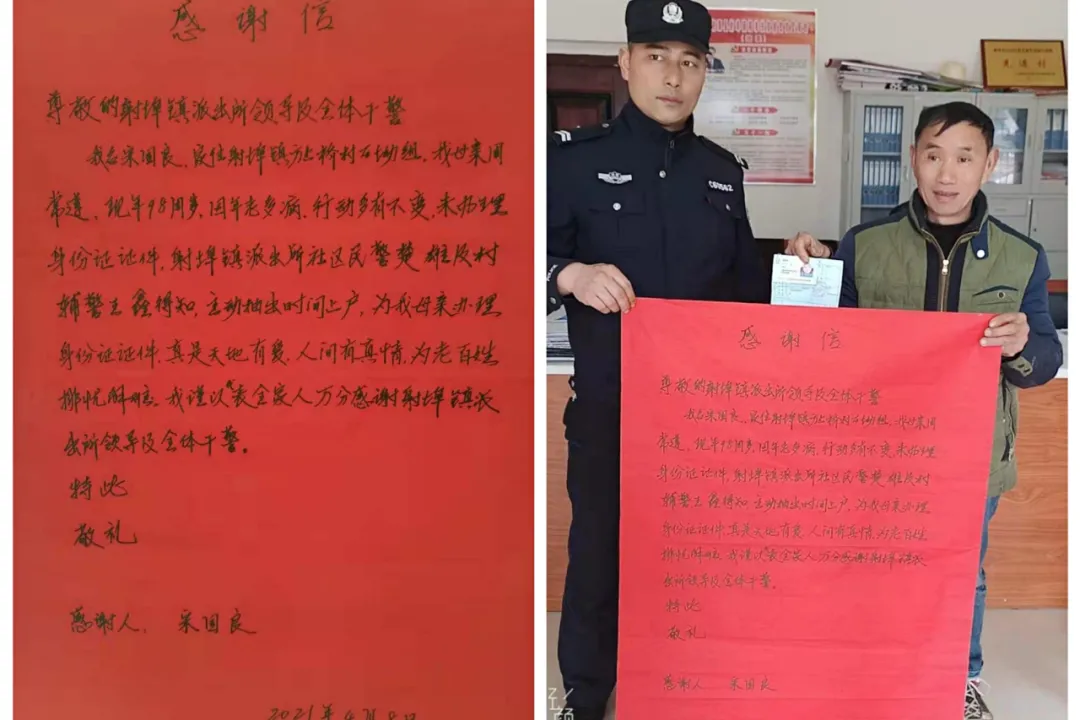 感谢信
尊敬的射埠镇派出所领导及全体干警
我名宋国良，家住射埠镇 桥村石坳组，我母亲周
常遵，现年98周岁，因年老多病，行动多有不变，未办理
身份证证件，射埠镇派出所社区民警楚雄及村
辅警王 得知，主动抽出时间上户，为我母亲办理
身份证证件，真是天地有爱，人间有真情，为老百姓
排忧解难。我谨以代表全家人万分感谢射埠镇派
出所领导及全体干警。
特此
敬礼
感谢人，宋国良
2021年4月8日
C61562
感谢信
尊敬的射埠镇派出所领导及全体干警
我名宋国良，家住射埠镇 桥村石坳组，我母亲周
常遵，现年98周岁，因年老多病，行动多有不变，未办理
身份证证件，射埠镇派出所社区民警楚雄及村
辅警王 得知，主动抽出时间上户，为我母亲办理
身份证证件，真是天地有爱，人间有真情，为老百姓
排忧解难，我谨以代表全家人万分感谢射埠镇派
出所领导及全体干警。
特此
敬礼
感谢人 宋国良